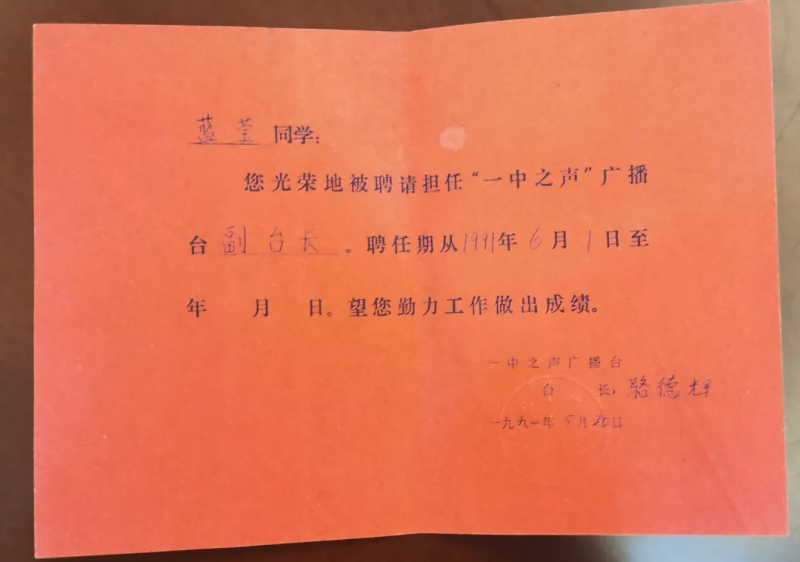 蓝莹同学：
您光荣地被聘请担任“一中之声”广播
台副台长。聘任期从1991年6月1日至
年 月 日。望您勤力工作做出成绩。
一中之声广播台
台 长：骆德辉
一九九一年5月30日